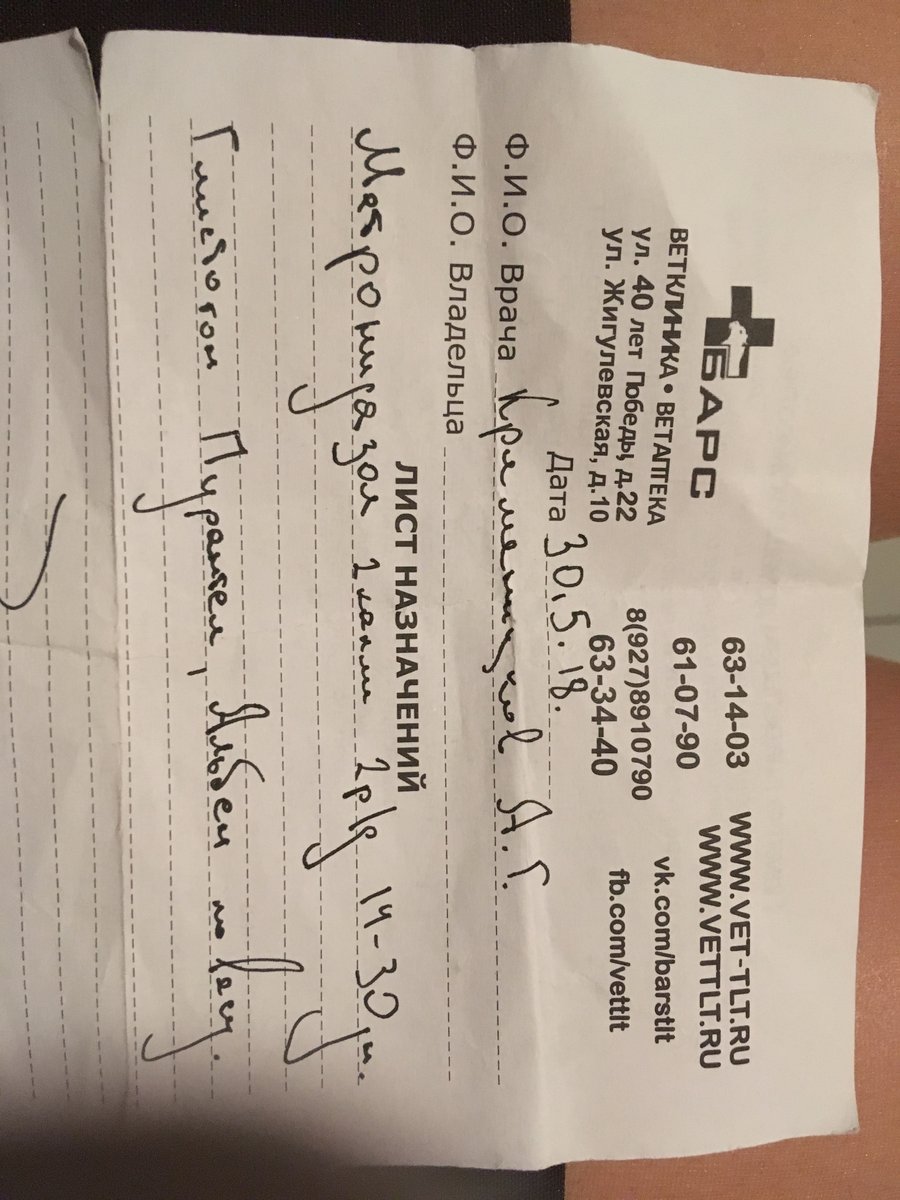 БАРС
ВЕТКЛИНИКА • ВЕТАПТЕКА
ул. 40 лет Победы, д.22
ул. Жигулевская, д.10
63-14-03
61-07-90
8(927)8910790
63-34-40
WWW.VET-TLT.RU
WWW.VETTLT.RU
vk.com/barstlt
fb.com/vettlt
Дата 30.5.18.
Ф.И.О. Врача А.Г.
Ф.И.О. Владельца
ЛИСТ НАЗНАЧЕНИЙ
Метронидазол 2р/д 14-30
Гмистогон Пурантел, Альбен по весу.